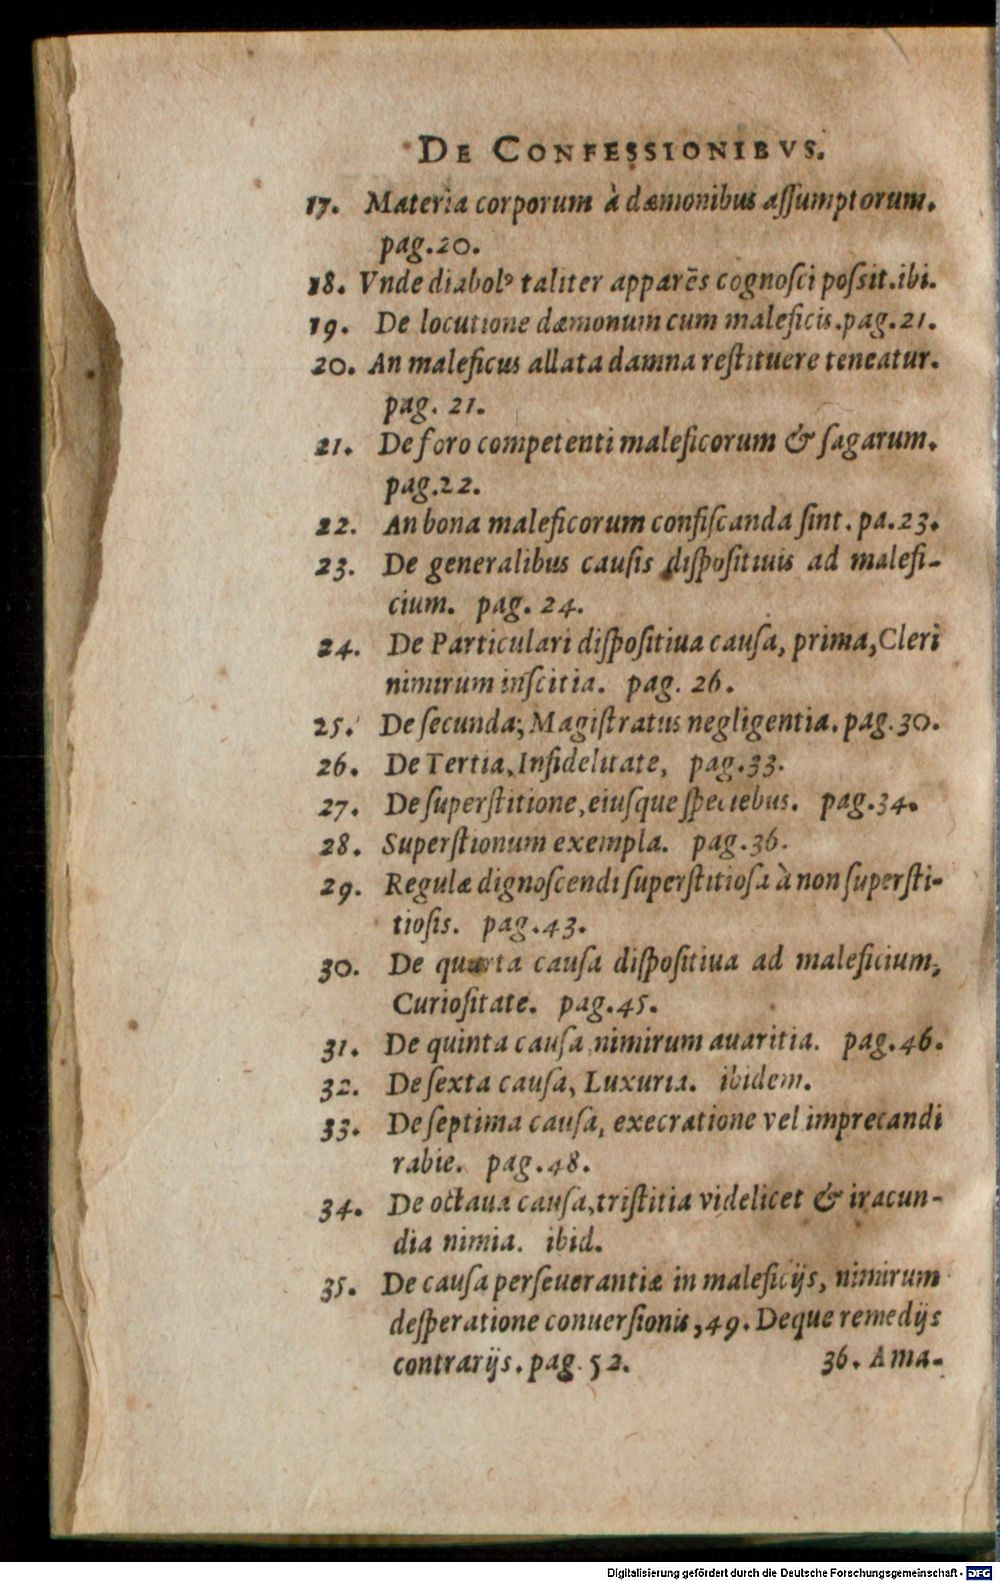 DE CONFESSIONIBVS.
17. Materia corporum à dæmonibus aſſumptorum.
pag.20.
18. Vnde diabolꝰ taliter apparēs cognoſci poſsit.ibi.
19. De locutione dæmonum cum maleficis.pag.21.
20. An maleficus allata damna reſtituere teneatur.
pag. 21.
21. De foro competenti maleficorum & ſagarum.
pag.22.
22. An bona maleficorum confiſcanda ſint. pa.23.
23. De generalibus cauſis diſpoſitiuis ad malefi-
cium. pag. 24.
24. De Particulari diſpoſitiua cauſa, prima, Cleri
nimirum inſcitia. pag. 26.
25. De ſecunda; Magiſtratus negligentia. pag.30.
26. De Tertia, Infidelitate, pag.33.
27. De ſuperſtitione, eiuſque ſpeciebus. pag.34.
28. Superſtionum exempla. pag.36.
29. Regulæ dignoſcendi ſuperſtitioſa à non ſuperſti-
tioſis. pag.43.
30. De quarta cauſa diſpoſitiua ad maleficium,
Curioſitate. pag.45.
31. De quinta cauſa nimirum auaritia. pag.46.
32. De ſexta cauſa, Luxuria. ibidem.
33. De ſeptima cauſa, execratione vel imprecandi
rabie. pag.48.
34. De octaua cauſa, triſtitia videlicet & iracun-
dia nimia. ibid.
35. De cauſa perſeuerantiæ in maleficijs, nimirum
deſperatione conuerſionis, 49. Deque remedijs
contrarijs. pag. 52. 36. Ama-
Digitalisierung gefördert durch die Deutsche Forschungsgemeinschaft - DFG